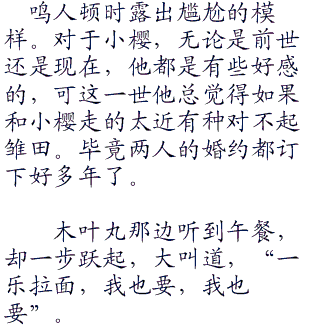 鸣人顿时露出尴尬的模
样。对于小樱，无论是前世
还是现在，他都是有些好感
的，可这一世他总觉得如果
和小樱走的太近有种对不起
雏田。毕竟两人的婚约都订
下好多年了。
木叶丸那边听到午餐，
却一步跃起，大叫道，“一
乐拉面，我也要，我也
要”。